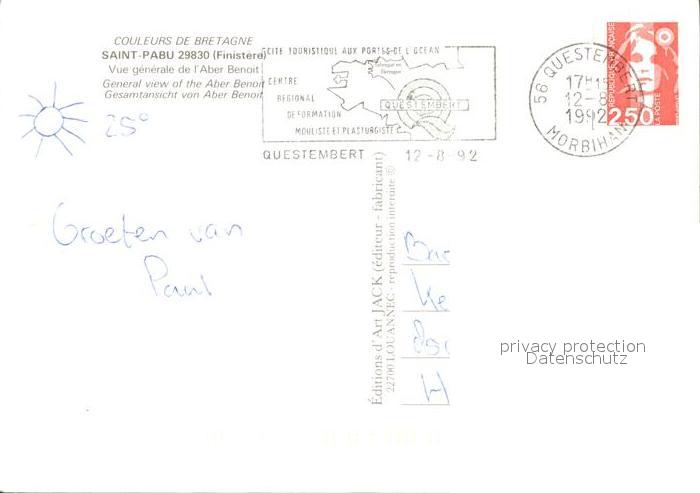 COULEURS DE BRETAGNE
SAINT-PABU 29830 (Finistère)
Vue générale de l'Aber Benoit
General view of the Aber Benoit
Gesamtansicht von Aber Benoit
25°
CITE TOURISTIQUE AUX PORTES DE L'OCEAN
CENTRE
REGIONAL
DE FORMATION
MOULISTE ET PLASTURGISTE
QUESTEMBERT
QUESTEMBERT 12-8-92
56 QUESTEMBERT
17H15
12-8
1992
MORBIHAN
REPUBLIQUE FRANÇAISE
2,50
LA POSTE
Groeten van
Paul
Éditions d'Art JACK (éditeur - fabricant)
22700 LOUANNEC - reproduction interdite ©
privacy protection
Datenschutz